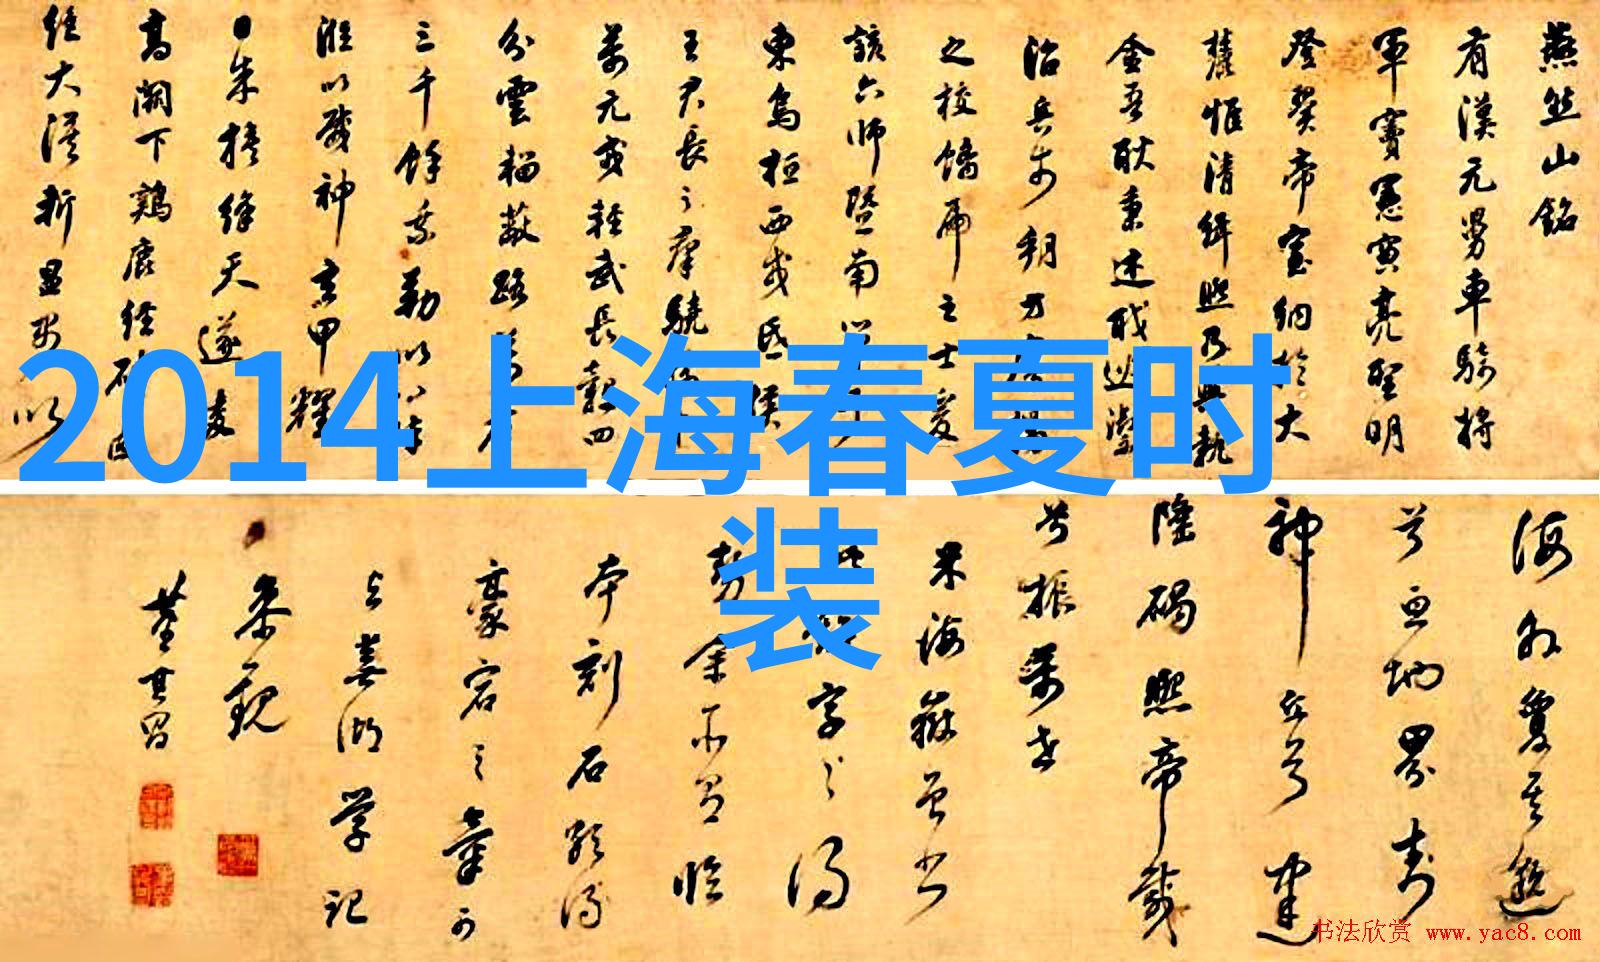 燕然山銘
有漢元舅車騎將
軍竇憲寅亮聖明
登翼帝室納於大
麓惟清緝熙乃與執
金吾耿秉述職巡禦
治兵於朔方
之校螭虎之士爰
該六師暨南
東烏桓西戎氐侯
王君長之群驍
萬元戎輕武長轂四
分雲輜蔽路萬有
三千餘乘勒以八陣
蒞以威神玄甲耀
日朱旗絳天遂凌
高闕下雞鹿經磧鹵
絕大漠斬溫禺以
2014上海春夏时
装
海外夐其邈
兮亘地界封
神丘兮建
隆碣熙帝載
兮振萬世
米海嶽曾書
字之得
勢余不臨
本刻石
豪宕之氣可
湖学記
觀
董其昌
书法欣赏 www.yac8.com